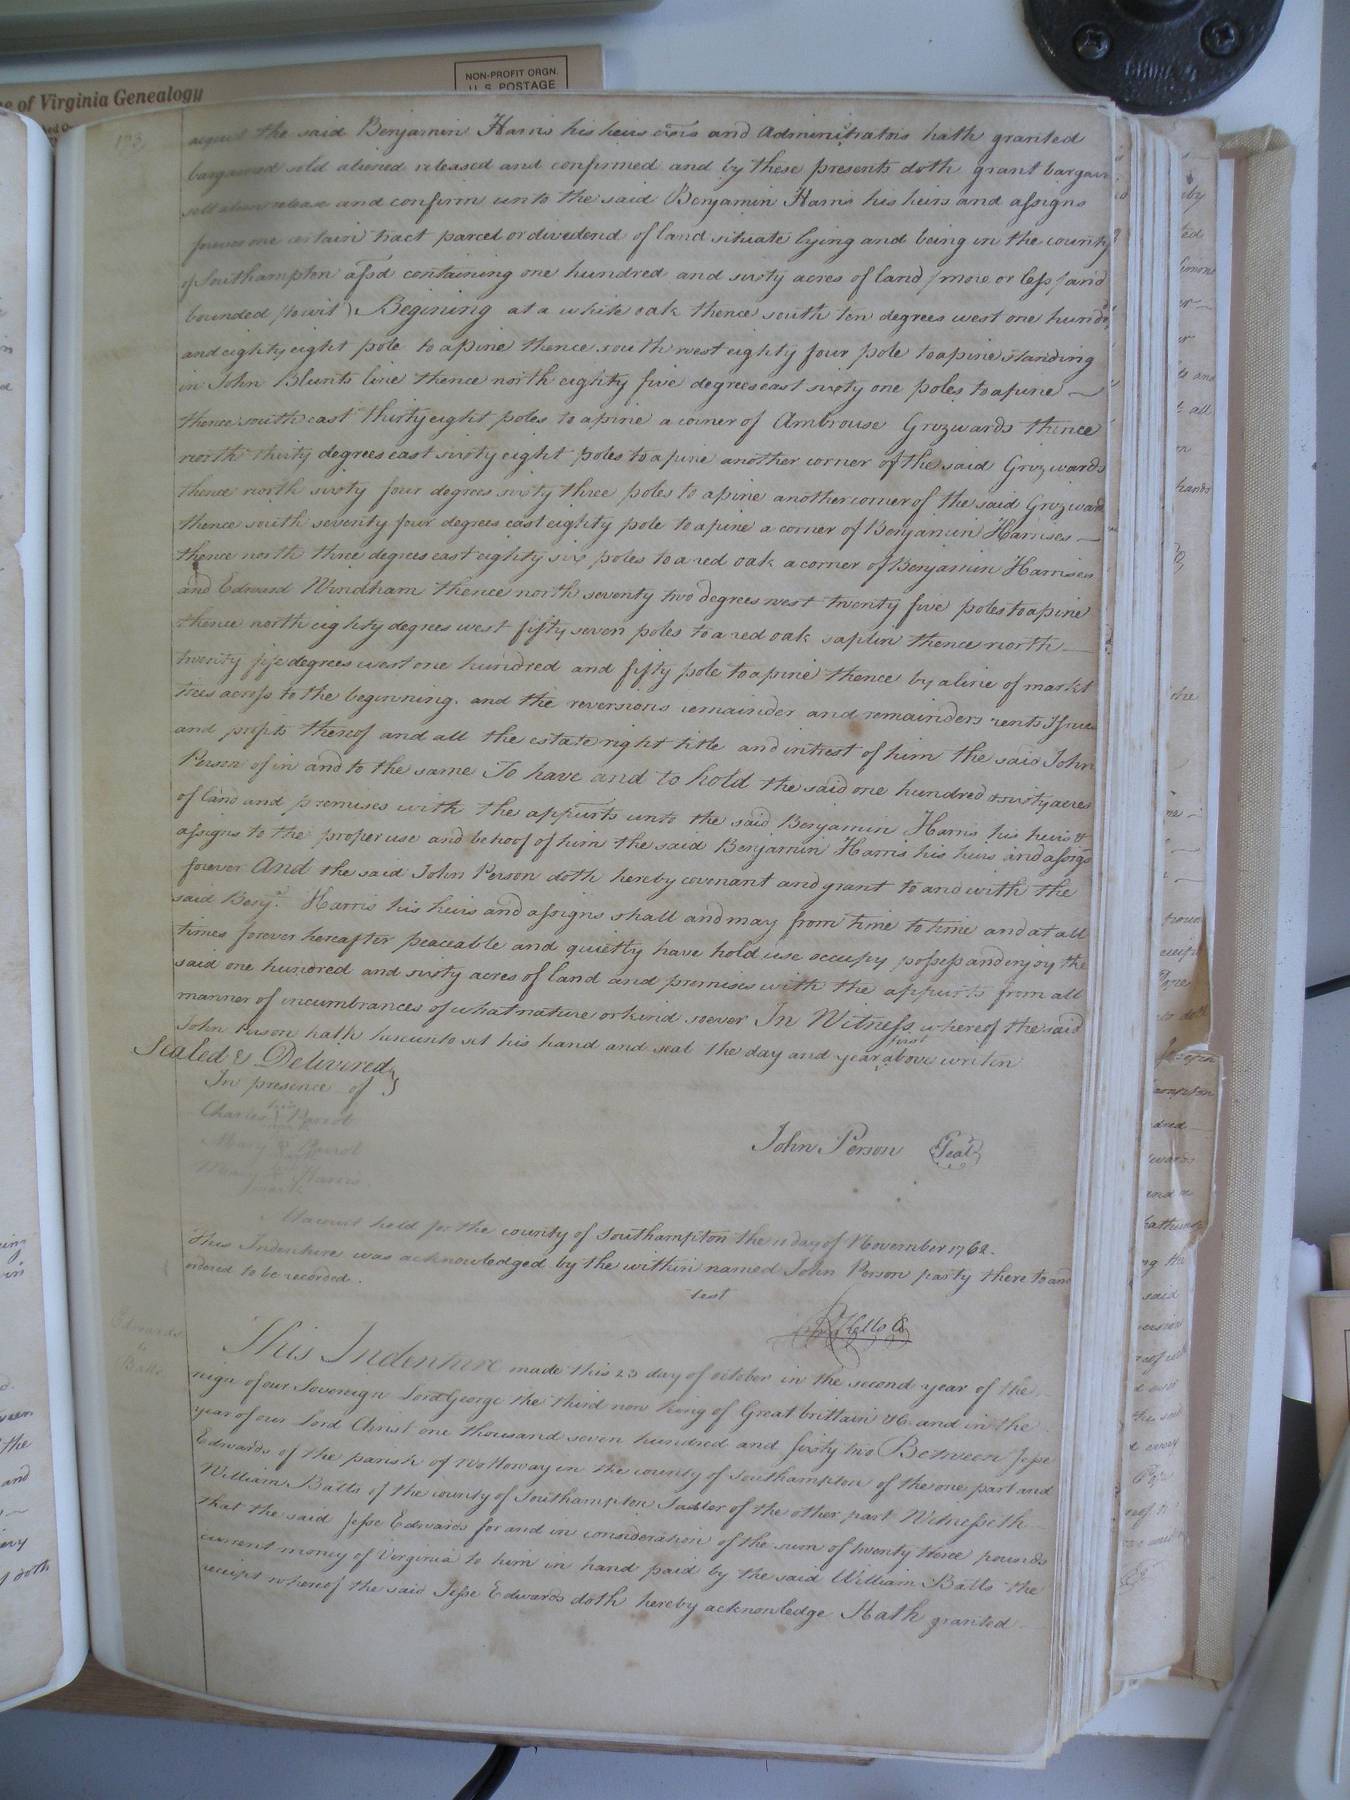 NON-PROFIT ORGN.
U.S. POSTAGE
of Virginia Genealogy
193
the said Benjamin Harris his heirs and Administrators hath granted
bargained sold aliened released and confirmed and by these presents doth grant bargain
sell alien release and confirm unto the said Benjamin Harris his heirs and assigns
forever one certain tract parcel or dividend of land situate lying and being in the county
of Southampton afsd containing one hundred and sixty acres of land /more or less/ and
bounded /towit) Begining at a white oak thence south ten degrees west one hundd
and eighty eight pole to a pine thence south west eighty four pole to a pine standing
in John Blunts line thence north eighty five degrees east sixty one poles to a pine
thence south east thirty eight poles to a pine a corner of Ambrouse Grizwards thence
north thirty degrees east sixty eight poles to a pine another corner of the said Grizwards
thence north sixty four degrees sixty three poles to a pine another corner of the said Grizward
thence south seventy four degrees east eighty pole to a pine a corner of Benjamin Harrises
thence north three degrees east eighty six poles to a red oak a corner of Benjamin Harrises
and Edward Windham thence north seventy two degrees west twenty five poles to a pine
thence north eighty degrees west fifty seven poles to a red oak saplin thence north
twenty five degrees west one hundred and fifty pole to a pine thence by a line of markt
trees across to the beginning. and the reversions remainder and remainders rents Issues
and profits thereof and all the estate right title and intrest of him the said John
Person of in and to the same To have and to hold the said one hundred & sixty acres
of land and premises with the appurts unto the said Benjamin Harris his heirs &
assigns to the proper use and behoof of him the said Benjamin Harris his heirs and assigs
forever And the said John Person doth hereby covenant and grant to and with the
said Benja. Harris his heirs and assigns shall and may from time to time and at all
times forever hereafter peaceable and quietly have hold use occupy possess and injoy the
said one hundred and sixty acres of land and premises with the appurts from all
manner of incumbrances of what nature or kind soever In Witness whereof the said
John Person hath hereunto set his hand and seal the day and year first above writin
Sealed & Delivered
In presence of
Charles his Parrot
Mary Parrot
Mary Harris
mark
John Person Seal
At a court held for the county of Southampton the 11 day of November 1762.
This Indenture was acknowledged by the within named John Person party there to and
ordered to be recorded.
test
Edwards
to
Batts
This Indenture made this 23 day of october in the second year of the
reign of our Sovereign Lord George the third now king of Great brittain &c and in the
year of our Lord Christ one thousand seven hundred and sixty two Between Jesse
Edwards of the parish of Nottoway in the county of Southampton of the one part and
William Batts of the county of Southampton Sadler of the other part Witnesseth
that the said Jesse Edwards for and in consideration of the sum of twenty three pounds
current money of Virginia to him in hand paid by the said William Batts the
receipt whereof the said Jesse Edwards doth hereby acknowledge Hath granted